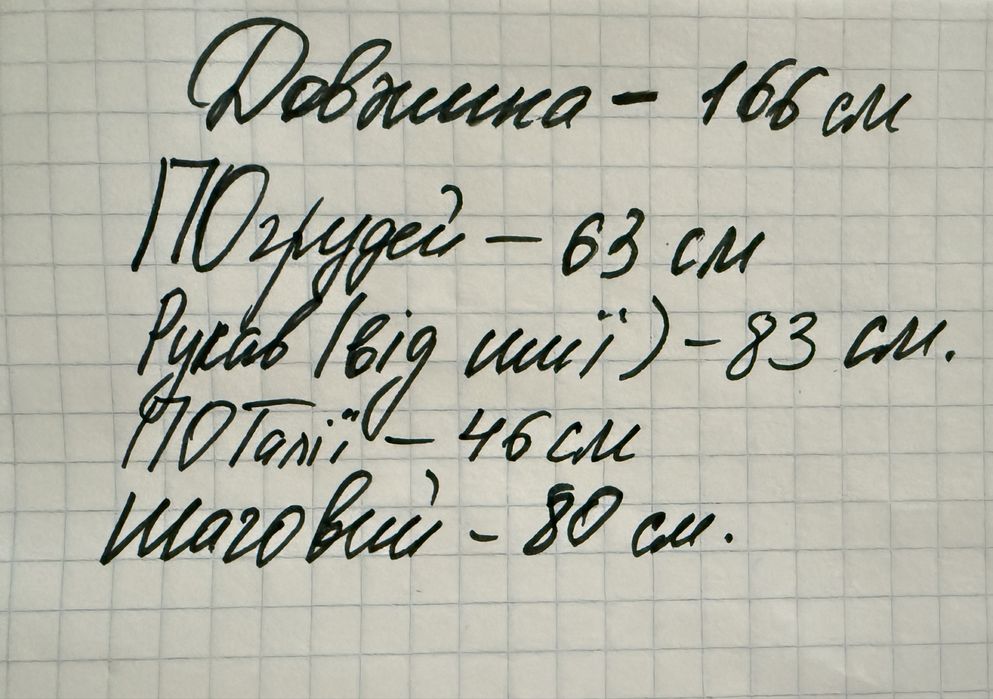 Довжина - 166 см
ПО грудей - 63 см
Рукав (від шиї) - 83 см.
ПО Талії - 46 см
Шаговий - 80 см.